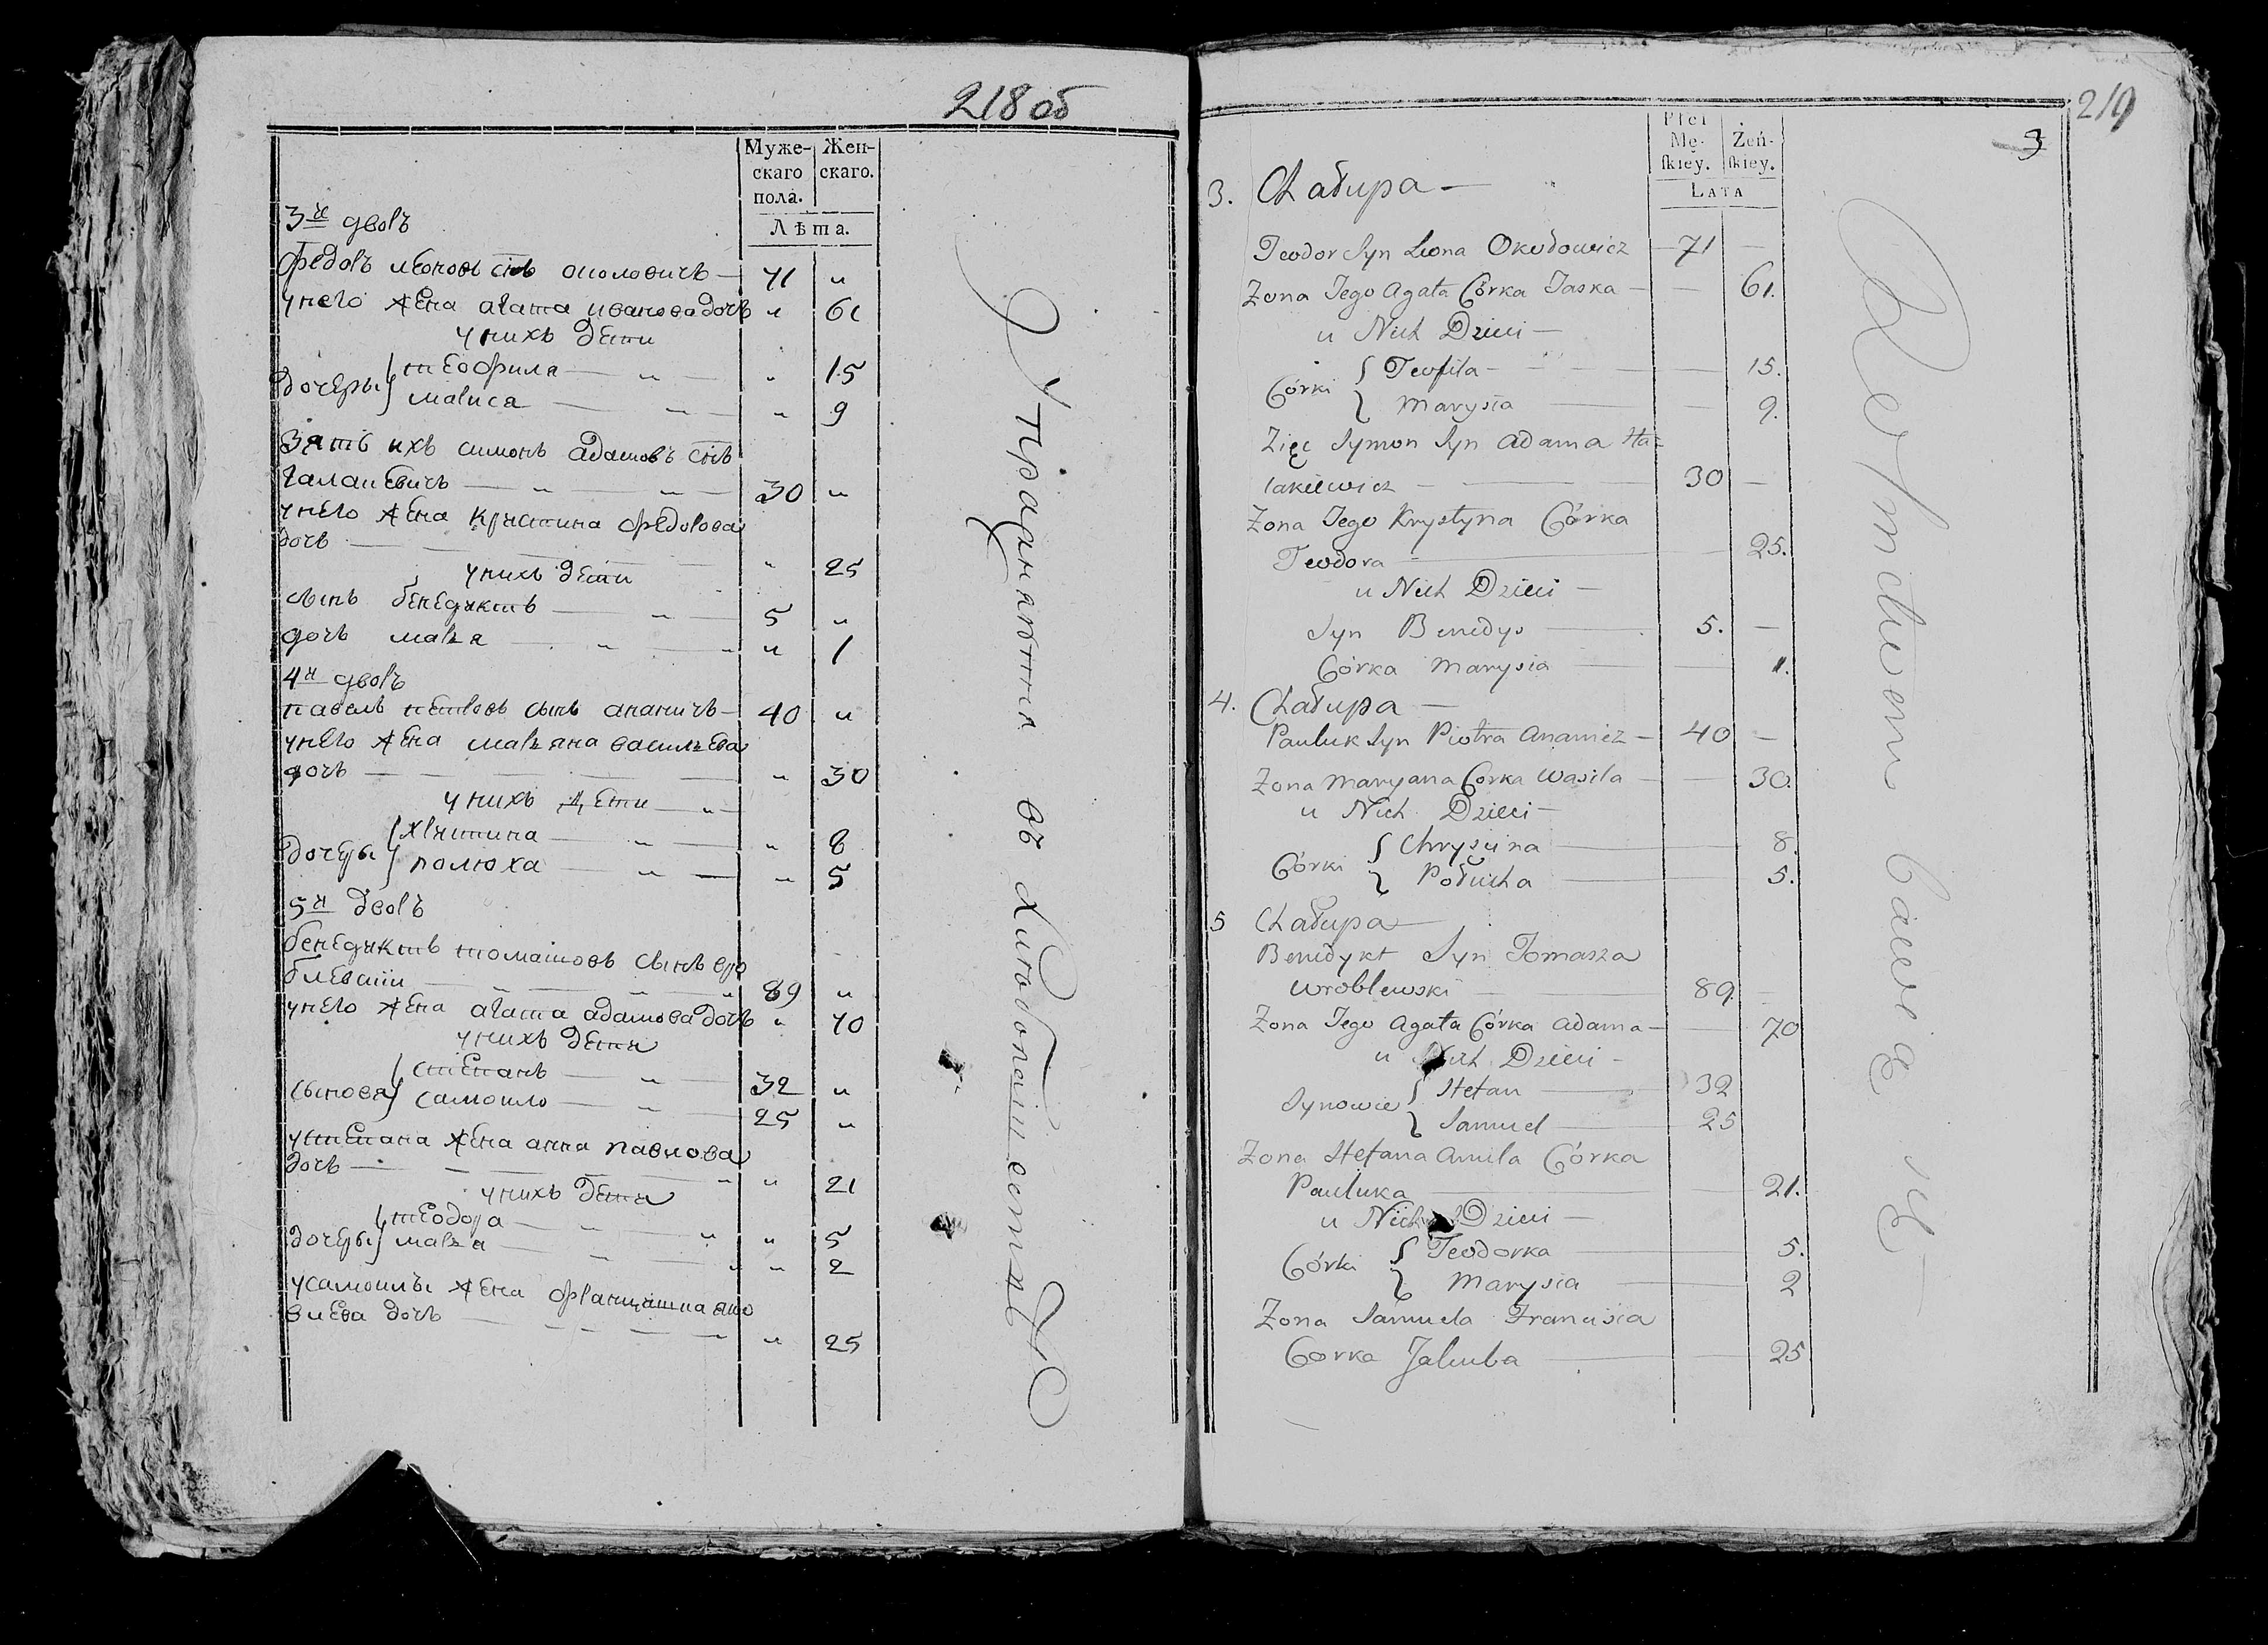 218 об
Муже-
скаго
пола.
Жен-
скаго.
Лѣта.
3й дворъ
Федоръ леоновъ снъ околовичъ — 71 „
унего жена агата иванова дочь „ 61
унихъ дети
дочеры { теофила — „ — „ 15
марися — „ — „ 9
Зять ихъ симонъ адамовъ снъ
галакевичъ — „ — „ — 30 „
унего жена кристина федорова
дочь — „ 25
унихъ дети
сынъ бенедиктъ — „ — 5 „
дочь маря — „ — „ „ 1
4й дворъ
павелъ петровъ сынъ ананичъ — 40 „
унего жена марьяна васильева
дочь — „ 30
унихъ дети — „
дочеры { христина — „ — „ 8
полюха — „ — „ 5
5й дворъ
бенедиктъ томашовъ сынъ вро
блевкий — „ 89 „
унего жена агата адамова дочь „ 70
унихъ дети
сыновя { степанъ — „ — 32 „
самойло — „ — 25 „
устепана жена анна павлова
дочь — „ „ 21
унихъ дети
дочеры { теодора — „ — „ „ 5
маря — „ — „ „ 2
усамойлы жена францишка яко
влева дочь — „ „ 25
219
3
Płci
Mę-
ſkiey.
Żeń-
ſkiey.
LATA
3. Chałupa —
Teodor Syn Leona Okołowicz — 71 —
Zona Jego Agata Córka Jaska — — 61.
u Nich Dzieci —
Córki { Teofila — — 15.
Marysia — — 9.
Zięc Symon Syn Adama Ha=
lakiewicz — — 30 —
Zona Jego Krystyna Córka
Teodora — — 25.
u Nich Dzieci —
Syn Benedys — 5. —
Córka Marysia — — 1.
4. Chałupa —
Pauluk Syn Piotra Ananicz — 40 —
Zona Maryana Corka Wasila — — 30.
u Nich Dzieci —
Córki { Chrysina — 8.
Połucha — 5.
5 Chałupa —
Benedykt Syn Tomasza
Wroblewski — 89. —
Zona Jego Agata Córka Adama — — 70
u Nich Dzieci —
Synowie { Stefan — 32
Samuel — 25
Zona Stefana Anula Córka
Pauluka — — 21.
u Nich Dzieci —
Córki { Teodorka — 5.
Marysia — 2
Zona Samuela Francisia
Corka Jakuba — 25